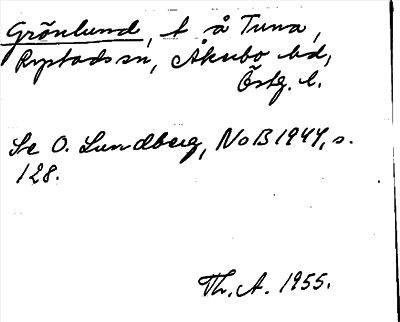 Grönlund, t å Tuna,
Rystads sn, Åkerbo hd,
Östg. l.
Se O. Lundberg, NoB 1944, s.
128.
Th. A. 1955.